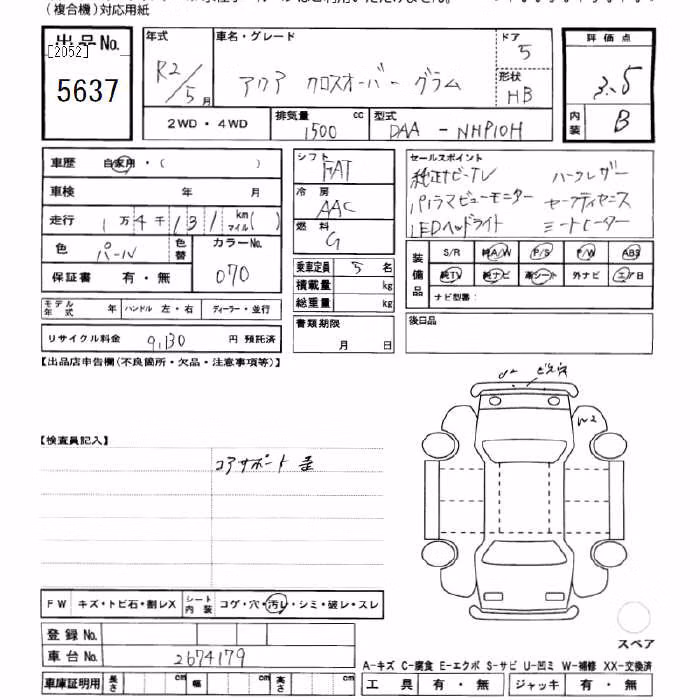 (複合機)対応用紙
出品No.
[2052]
5637
年式
R2/5月
車名・グレード
アクア クロスオーバー グラム
ドア
5
形状
HB
評価点
3.5
内装
B
2WD・4WD
排気量 1500 cc
型式 DAA-NHP10H
車歴 自家用・( )
車検 年 月
走行 1万4千131 km マイル( )
色 パール
色替
カラーNo. 070
保証書 有・無
モデル年式 年 ハンドル 左・右 ディーラー・並行
リサイクル料金 9,130 円 預託済
シフト FAT
冷房 AAC
燃料 G
乗車定員 5 名
積載量 kg
総重量 kg
書類期限
月 日
セールスポイント
純正ナビ・TV ハーフレザー
パノラマビューモニター セーフティセンス
LEDヘッドライト シートヒーター
装備品
S/R 純A/W P/S P/W ABS
純TV 純ナビ 革シート 外ナビ エア日
ナビ型番:
後日品
【出品店申告欄(不良箇所・欠品・注意事項等)】
【検査員記入】
コアサポート 歪
W2
FW キズ・トビ石・割レX シート内装 コゲ・穴・汚レ・シミ・破レ・スレ
登録No.
車台No. 2674179
車庫証明用 長さ cm 幅 cm 高さ cm
スペア
A-キズ C-腐食 E-エクボ S-サビ U-凹ミ W-補修 XX-交換済
工具 有・無 ジャッキ 有・無